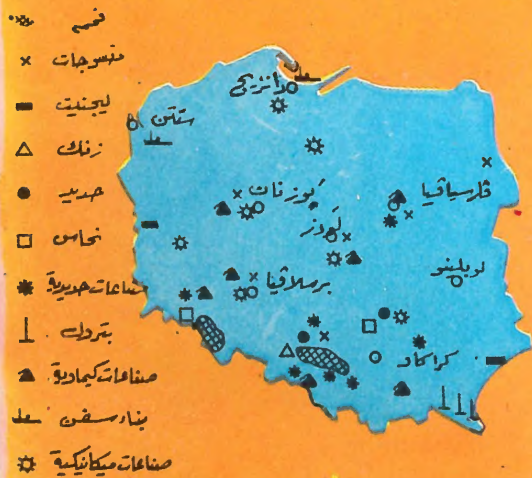 فحم
منسوجات
ليجنيت
زنك
حديد
نحاس
صناعات حديدية
بترول
صناعات كيماوية
بناء سفن
صناعات ميكانيكية
دانزيج
ستتن
بوزنان
فارسافيا
لودز
لوبلينو
برسلافيا
كراكاو